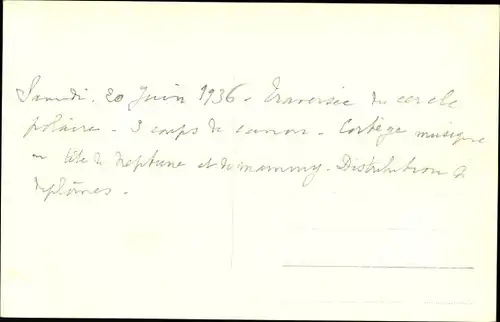 Samedi. 20 Juin 1936 - Traversée du cercle
polaire - 3 coups de canon - Cortège musique
en tête de Neptune et de mammy - Distribution de
diplômes.